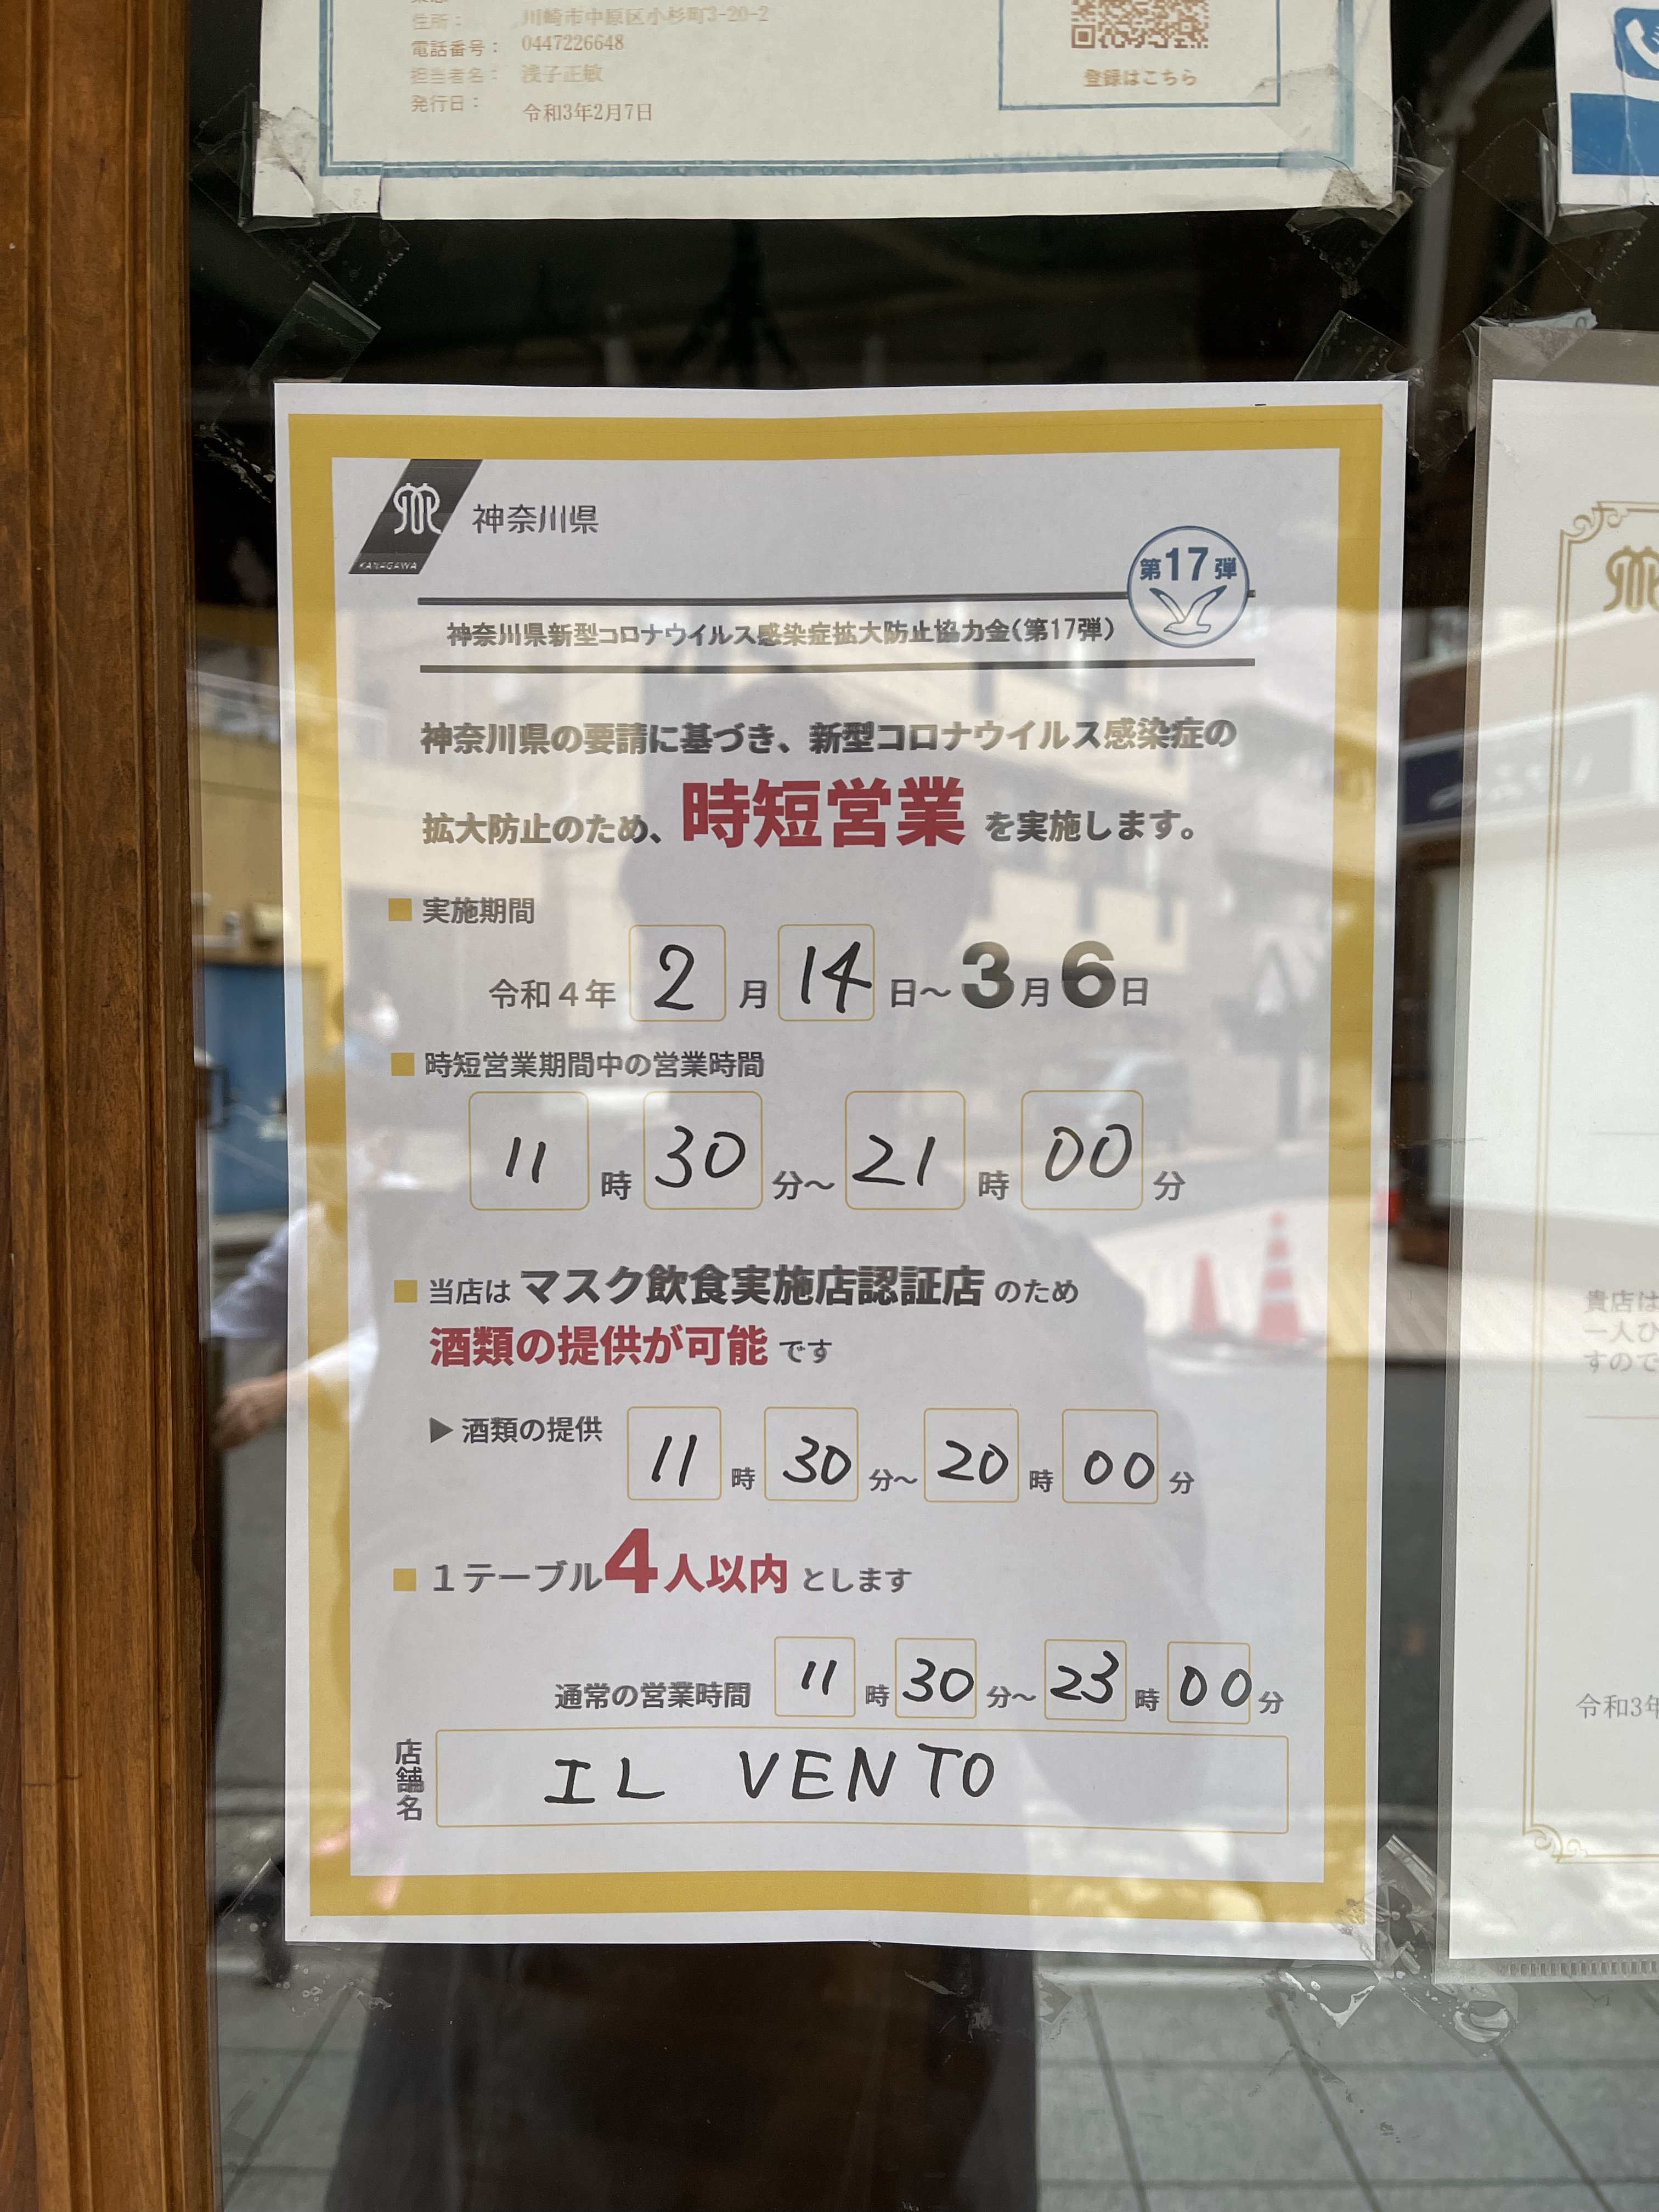 住所： 川崎市中原区小杉町3-20-2
電話番号： 0447226648
担当者名： 浅子正敏
発行日： 令和3年2月7日
登録はこちら
神奈川県
KANAGAWA
第17弾
神奈川県新型コロナウイルス感染症拡大防止協力金(第17弾)
神奈川県の要請に基づき、新型コロナウイルス感染症の
拡大防止のため、時短営業を実施します。
■ 実施期間
令和４年 2月 14日～3月6日
■ 時短営業期間中の営業時間
11時 30分～21時 00分
■ 当店は マスク飲食実施店認証店 のため
酒類の提供が可能 です
▶酒類の提供 11時 30分～20時 00分
■ １テーブル4人以内 とします
通常の営業時間 11時 30分～23時 00分
店舗名 IL VENTO
貴店は
一人ひ
すので
令和3年